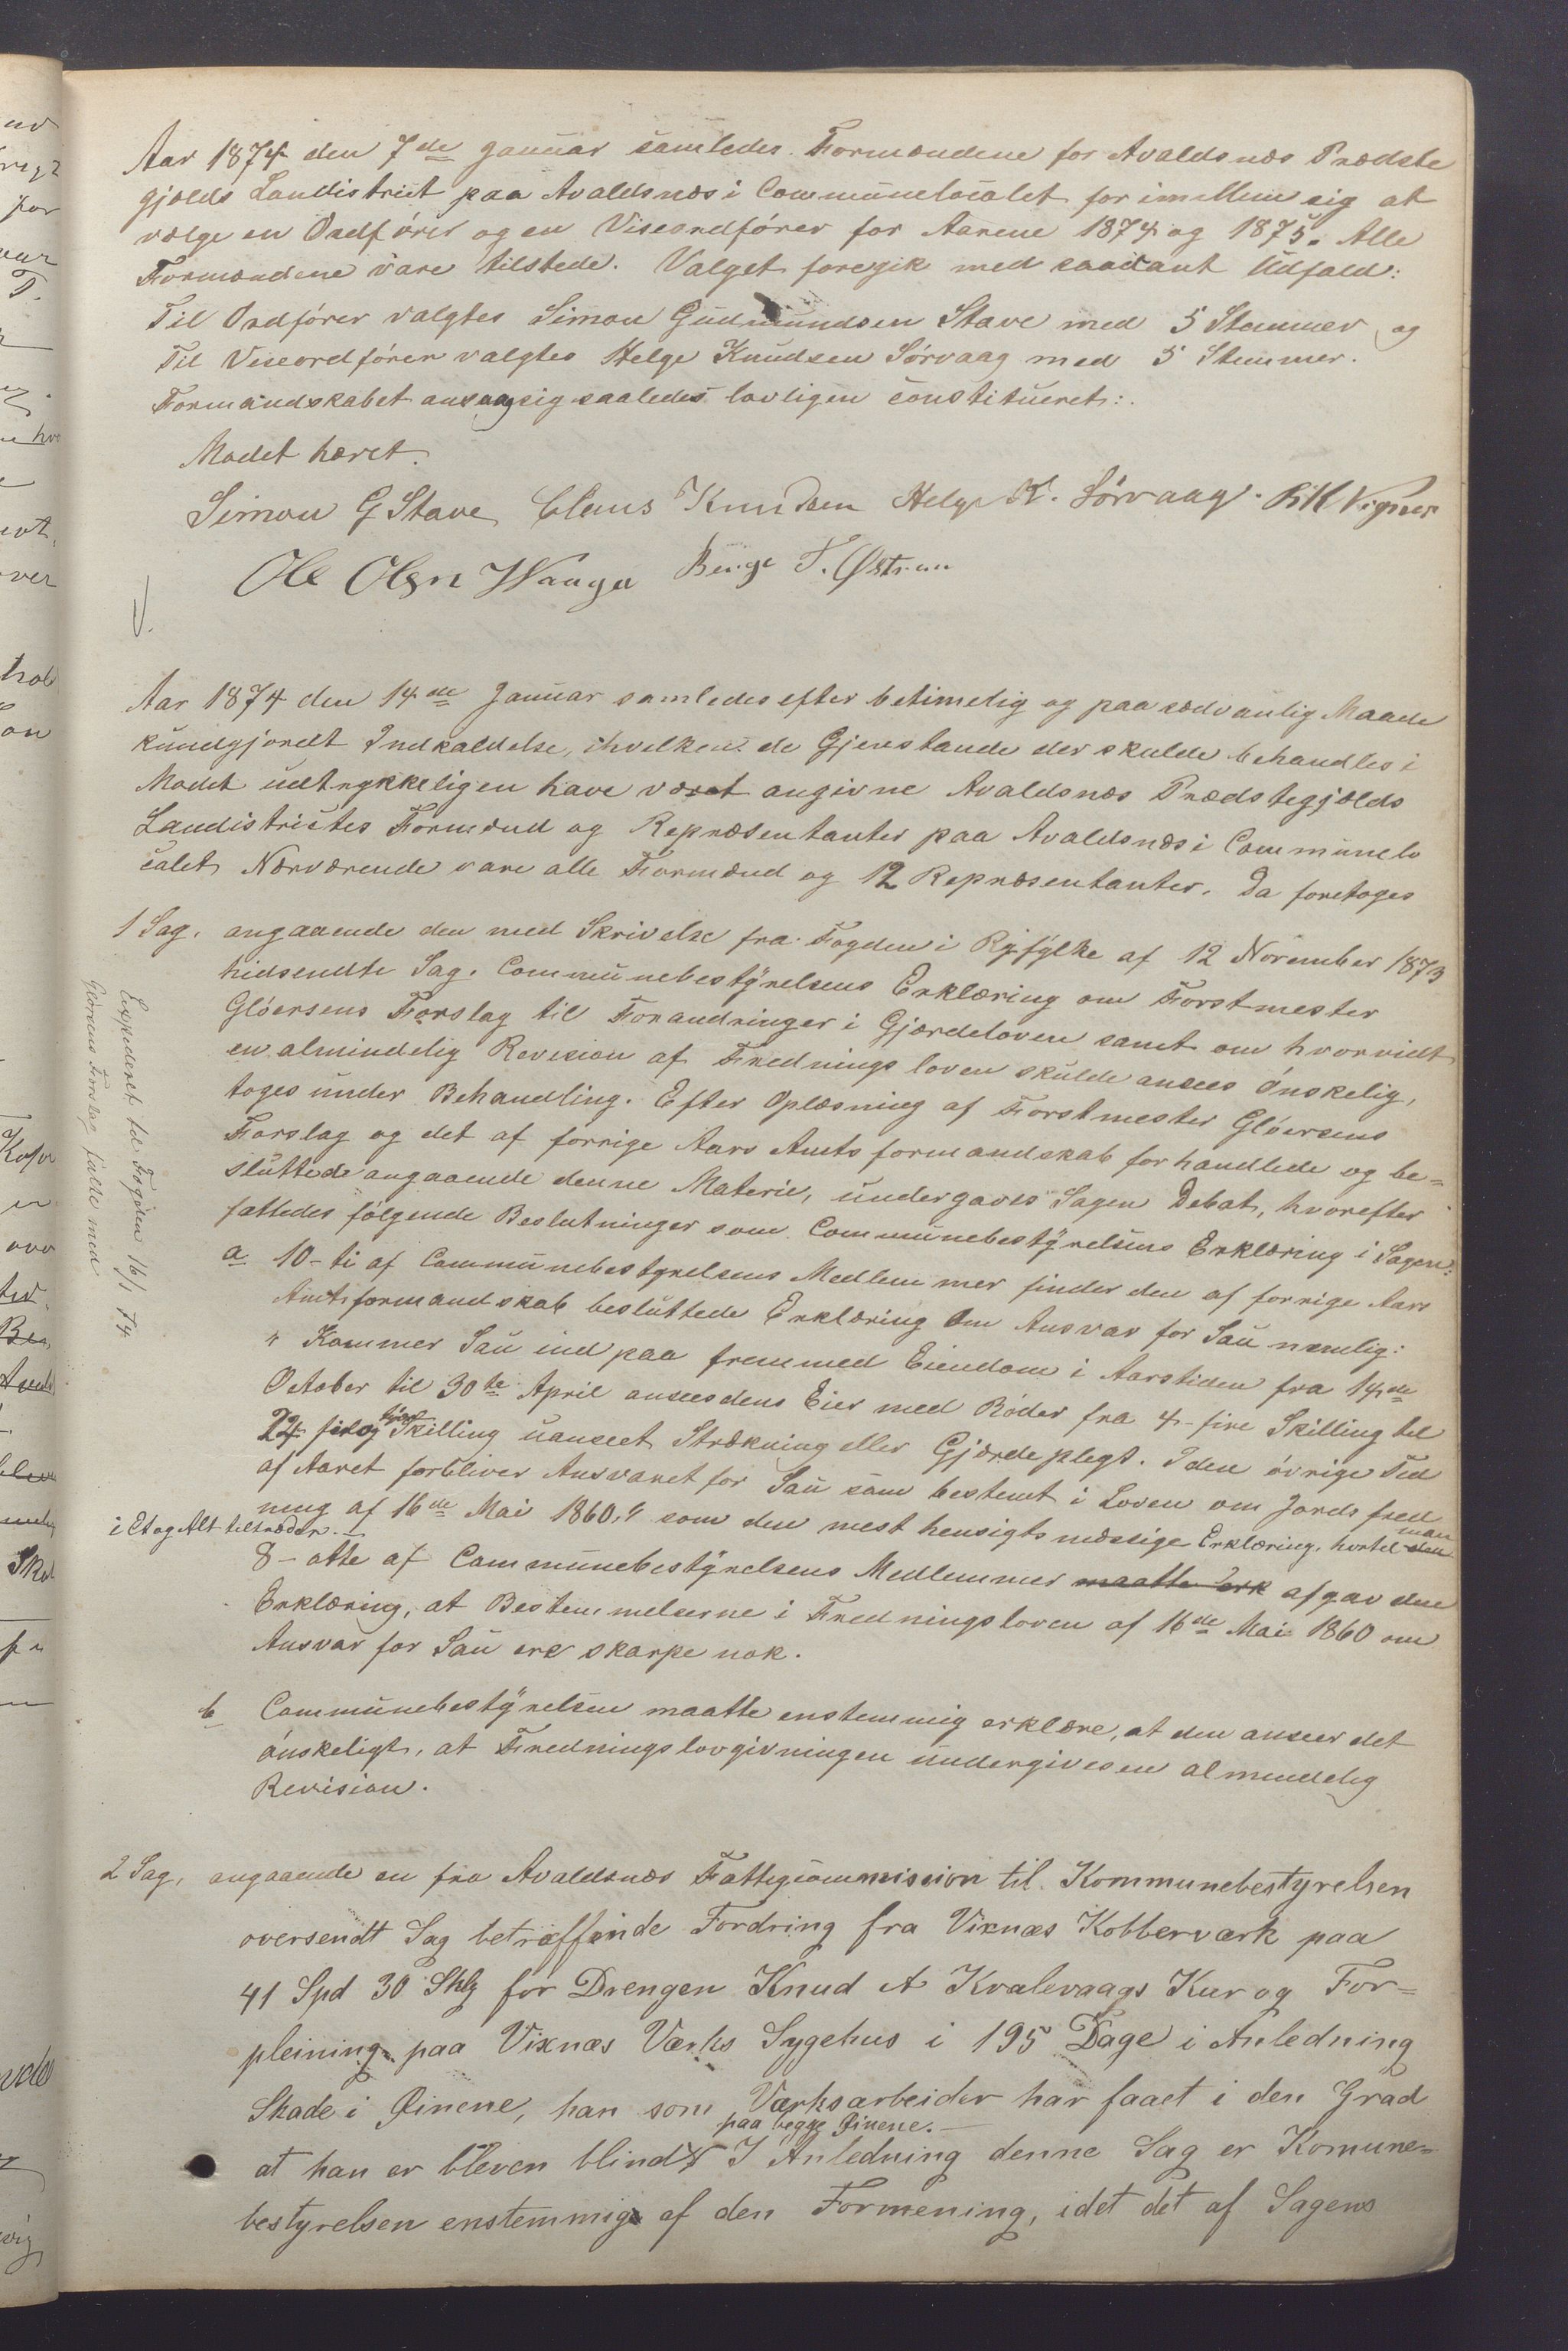 Aar 1874 den 7de Januar samledes Formændene for Avaldsnæs Prædste
gjælds Landistrict paa Avaldsnæs i Communelocalet for imellem sig at
vælge en Ordfører og en Viseordfører for Aarene 1874 og 1875. Alle
Formændene vare tilstede. Valget foregik med saadant Udfald:
Til Ordfører valgtes Simon Gudmundsen Stave med 5 Stemmer og
Til Viseordfører valgtes Helge Knudsen Sørvaag med 5 Stemmer.
Formandskabet ansaag sig saaledes lovligen constitueret:.
Mødet hævet.
Simon G Stave Claus Knudsen Helge K. Sørvaag.
Ole Olsen Waage Berge T.
V.
Aar 1874 den 14de Januar samledes efter betimelig og paa sædvanlig Maade
kundgjordt Indkaldelse, ihvilken de Gjenstande der skulde behandles i
Mødet udtrykkeligen have været angivne Avaldsnæs Prædstegjælds
Landistrictes Formænd og Repræsentanter paa Avaldsnæs i Communelo
calet. Nærværende vare alle Formænd og 12 Repræsentanter. Da foretoges
1 Sag. angaaende den med Skrivelse fra Fogden i Ryfylke af 12 November 1873
hidsendte Sag. Communebestyrelsens Erklæring om Forstmester
Gløersens Forslag til Forandringer i Gjærdeloven samt om hvorvidt
en almindelig Revision af Frednings loven skulde ansees ønskelig,
toges under Behandling. Efter Oplæsning af Forstmester Gløersens
Forslag og det af forrige Aars Amts formandskab forhandlede og be=
sluttede angaaende denne Materie, undergaves Sagen Debat, hvorefter
fattedes følgende Beslutninger som Communebestyrelsens Erklæring i Sagen:
Expederet til Fogden 16/1 74
Gløersens Forslag fulte med
a 10-ti af Communebestyrelsens Medlemmer finder den af forrige Aars
Amtsformandskab besluttede Erklæring om Ansvar for Sau nemlig:
" Kommer Sau ind paa fremmed Eiendom i Aarstiden fra 14de
October til 30te April ansees dens Eier med Bøder fra 4-fire Skilling til
24 fire og tyve Skilling uanseet Strækning eller Gjærdeplegt. I den øvrige Tid
af Aaret forbliver Ansvaret for Sau som bestemt i Loven om Jords fred
ning af 16de Mai 1860," som den mest hensigtsmæssige Erklæring, hvortil den man
i Et og Alt tiltræder.
8-otte af Communebestyrelsens Medlemmer maatte erk afgav den
Erklæring, at Bestemmelserne i Fredningsloven af 16de Mai 1860 om
Ansvar for Sau ere skarpe nok.
b Communebestyrelsen maatte enstemmig erklære, at den anseer det
ønskeligt, at Fredningslovgivningen undergives en almindelig
Revision.
2 Sag, angaaende en fra Avaldsnæs Fattigcommission til Kommunebestyrelsen
oversendt Sag betræffende Fordring fra Vixnæs Kobberværk paa
41 Spd 30 Sklg for Drengen Knud A Kvalevaags Kur og For=
pleining paa Vixnæs Værks Sygehus i 195 Dage i Anledning
Skade i Øinene, han som Værksarbeider har faaet i den Grad
at han er bleven blind paa begge Øinene.- I Anledning denne Sag er Komune=
bestyrelsen enstemmig af den Formening, idet det af Sagens